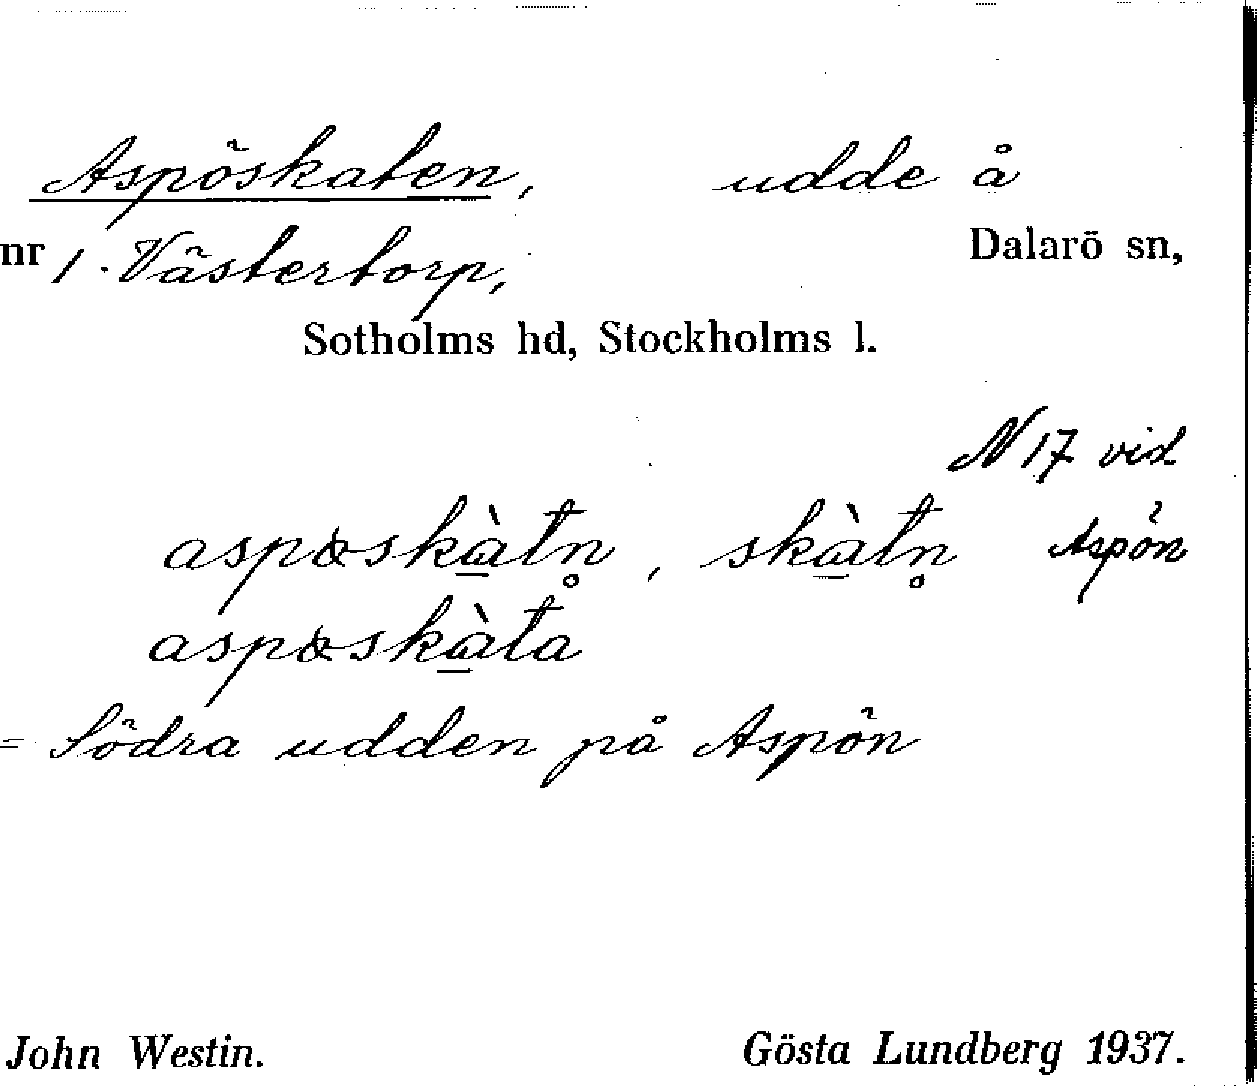 Aspöskaten, udde å
nr 1. Västertorp, Dalarö sn,
Sotholms hd, Stockholms l.
N 17 vid
aspøskɑ̱̀tn̥, skɑ̱̀tn̥ Aspön
aspøskɑ̱̀ta
= Södra udden på Aspön
John Westin. Gösta Lundberg 1937.